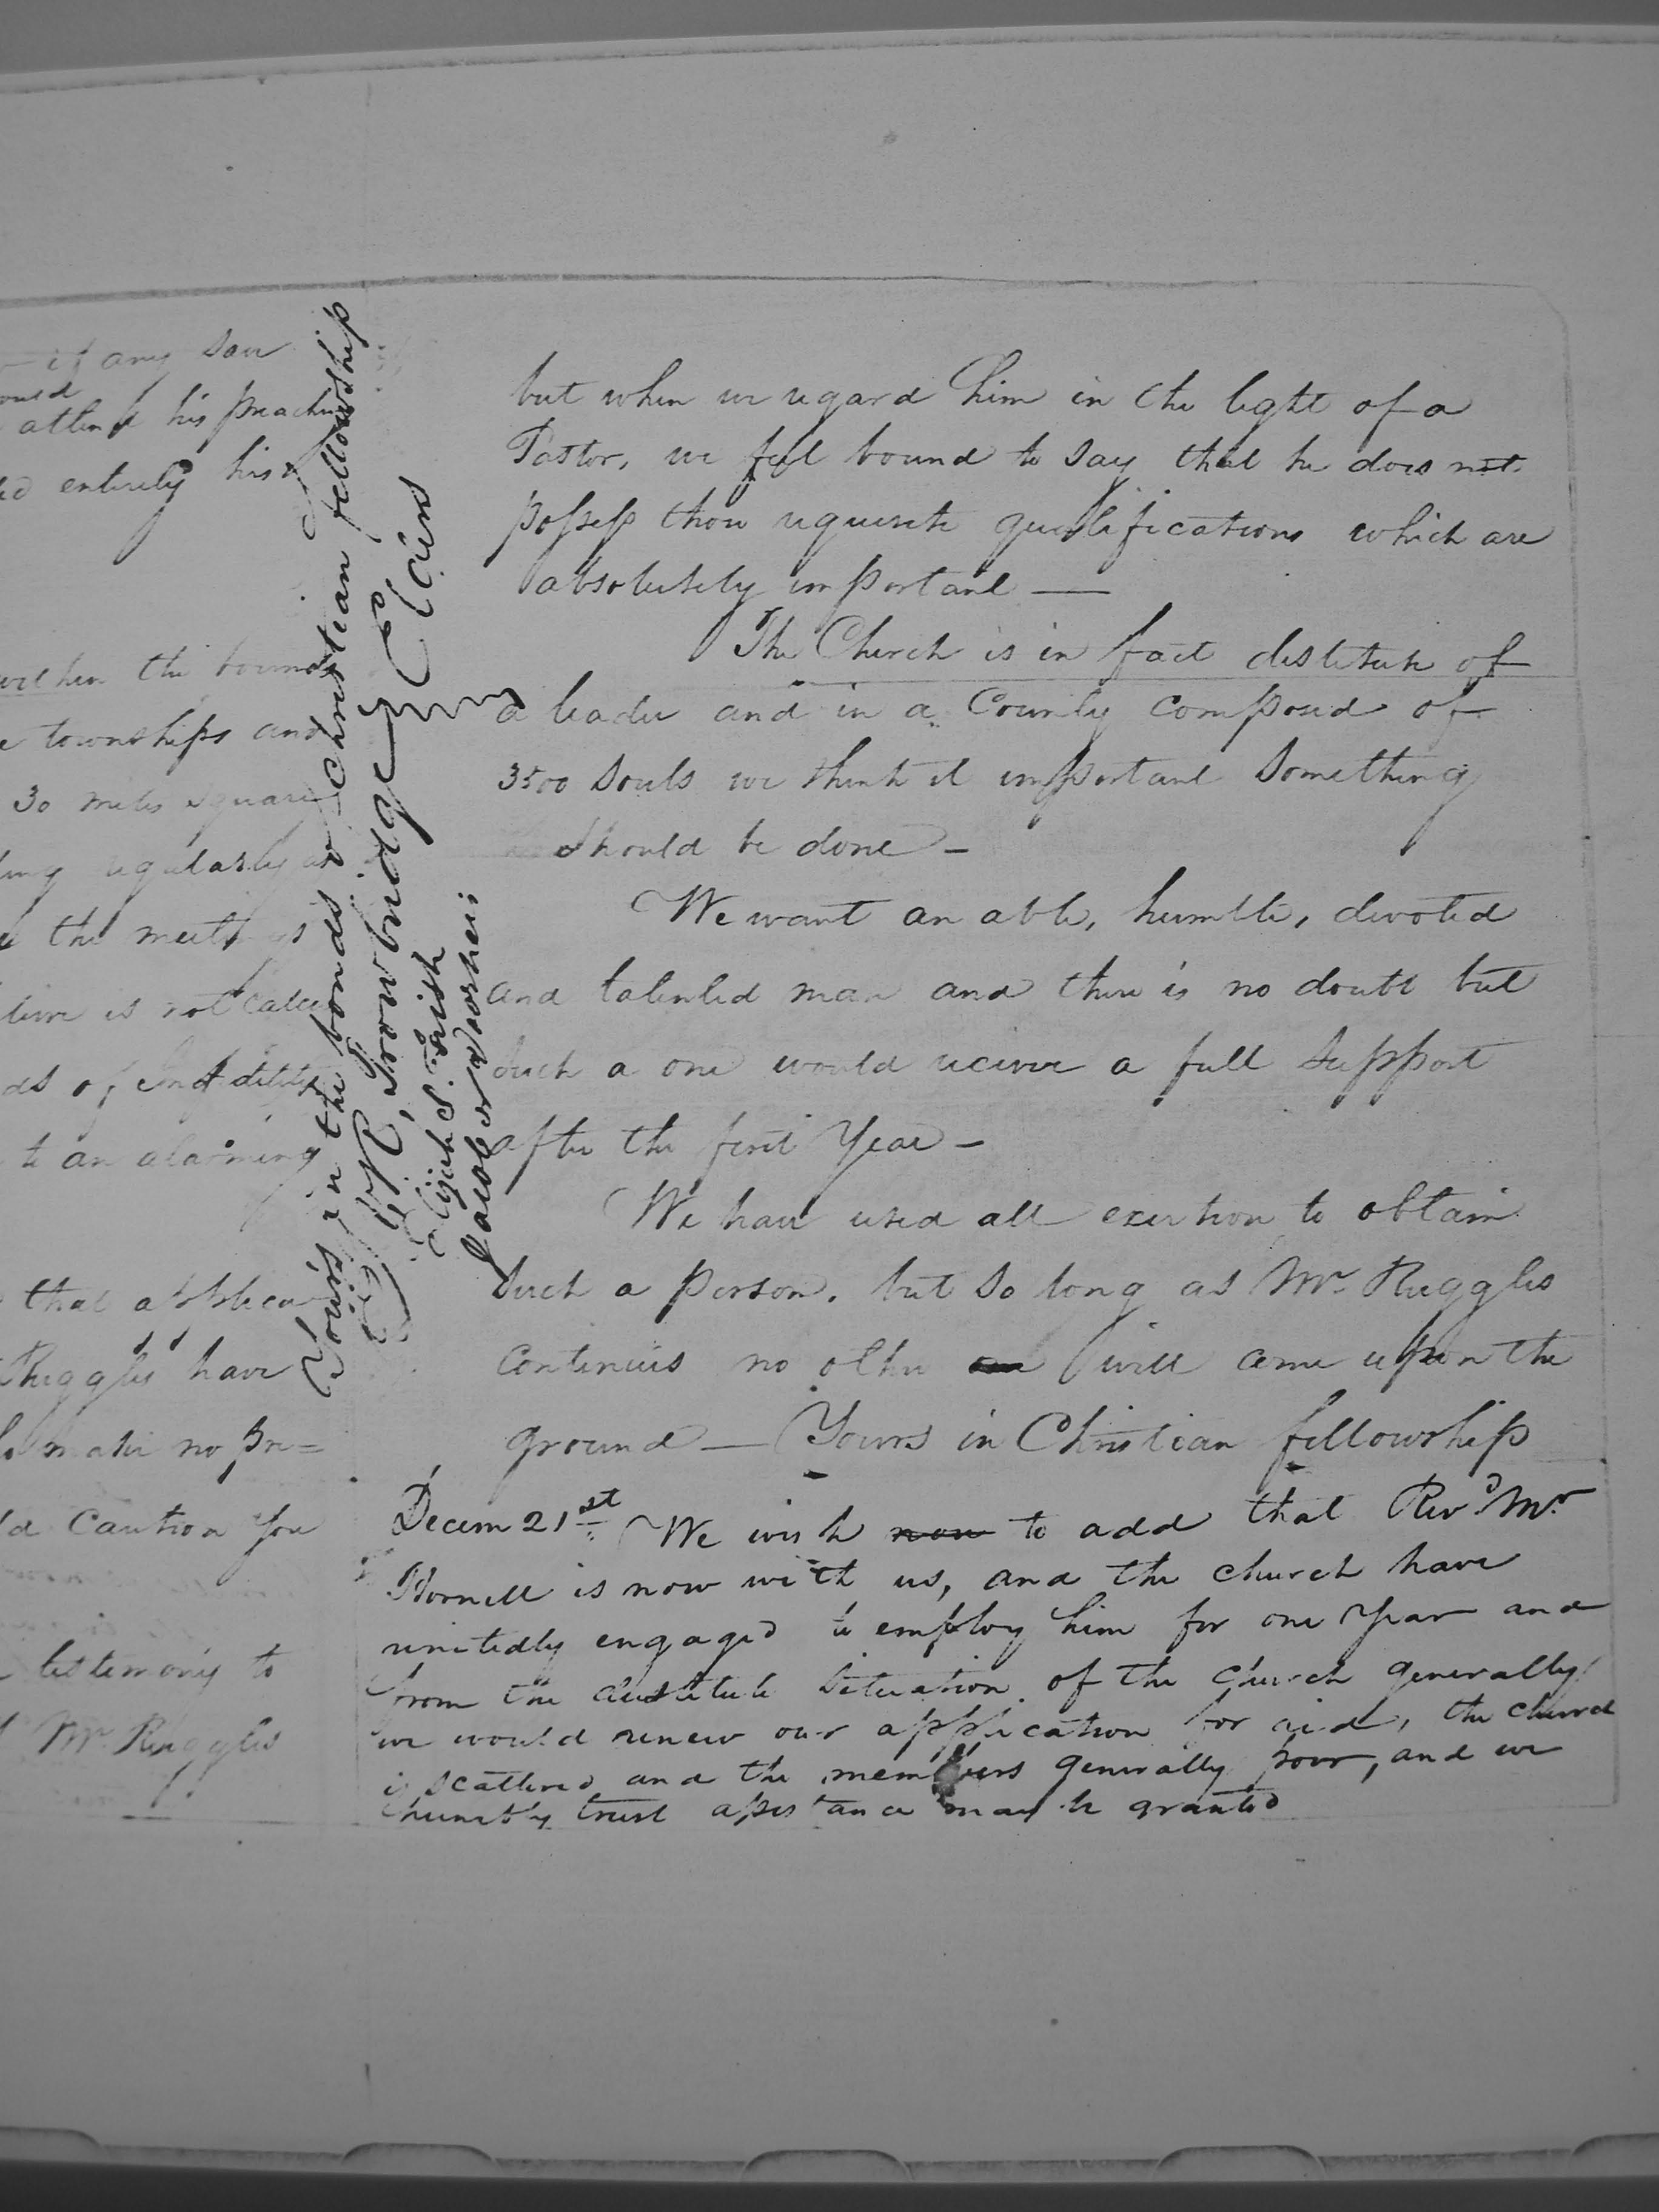 if any
attend his preaching
entirely his
within the bounds
townships and
30 miles square
regularly
the meetings
time is not
ds of
to an alarming
that
Ruggles have
make no pre=
Caution you
testimony to
Mr. Ruggles
Yours in the bonds of Christian fellowship
S. V. R. Trowbridge
Elders
Elijah S. Fish
Jacob Voorheis
but when we regard him in the light of a
Pastor, we feel bound to say that he does not
possess those requisite qualifications which are
absolutely important —
The Church is in fact destitute of
a leader and in a County composed of
3500 souls we think it important something
should be done —
We want an able, humble, devoted
and talented man and there is no doubt but
such a one would receive a full support
after the first year —
We have used all exertion to obtain
such a person, but so long as Mr. Ruggles
continues no other will come upon the
ground — Yours in Christian fellowship
Decem 21st We wish now to add that Revd. Mr.
Hornell is now with us, and the church have
unitedly engaged to employ him for one year and
from the destitute situation of the church generally
we would renew our application for aid, the church
is scattered and the members generally poor, and we
humbly trust assistance may be granted